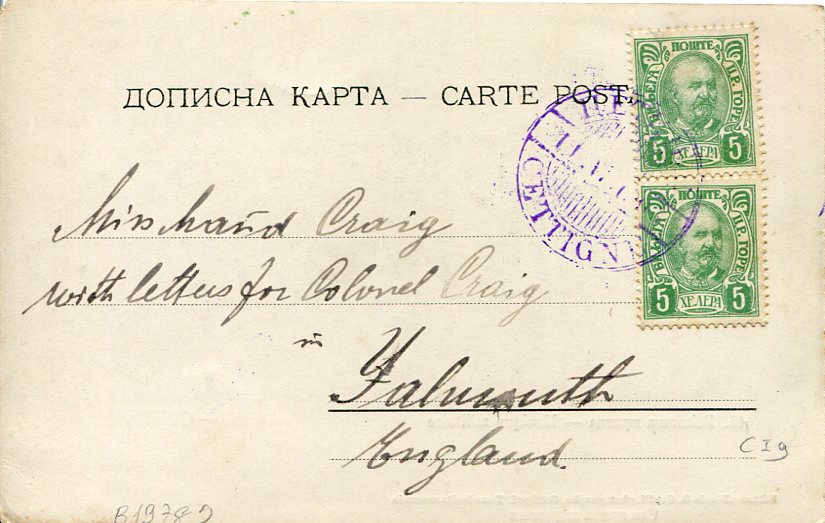 ДОПИСНА КАРТА — CARTE POST
ПОШТЕ ЦР. ГОРЕ
5 ХЕЛЕРА 5
CETTIGNE
ПОШТЕ ЦР. ГОРЕ
5 ХЕЛЕРА 5
Miss Maud Craig
with letters for Colonel Craig
in
Falmouth
England.
C I g